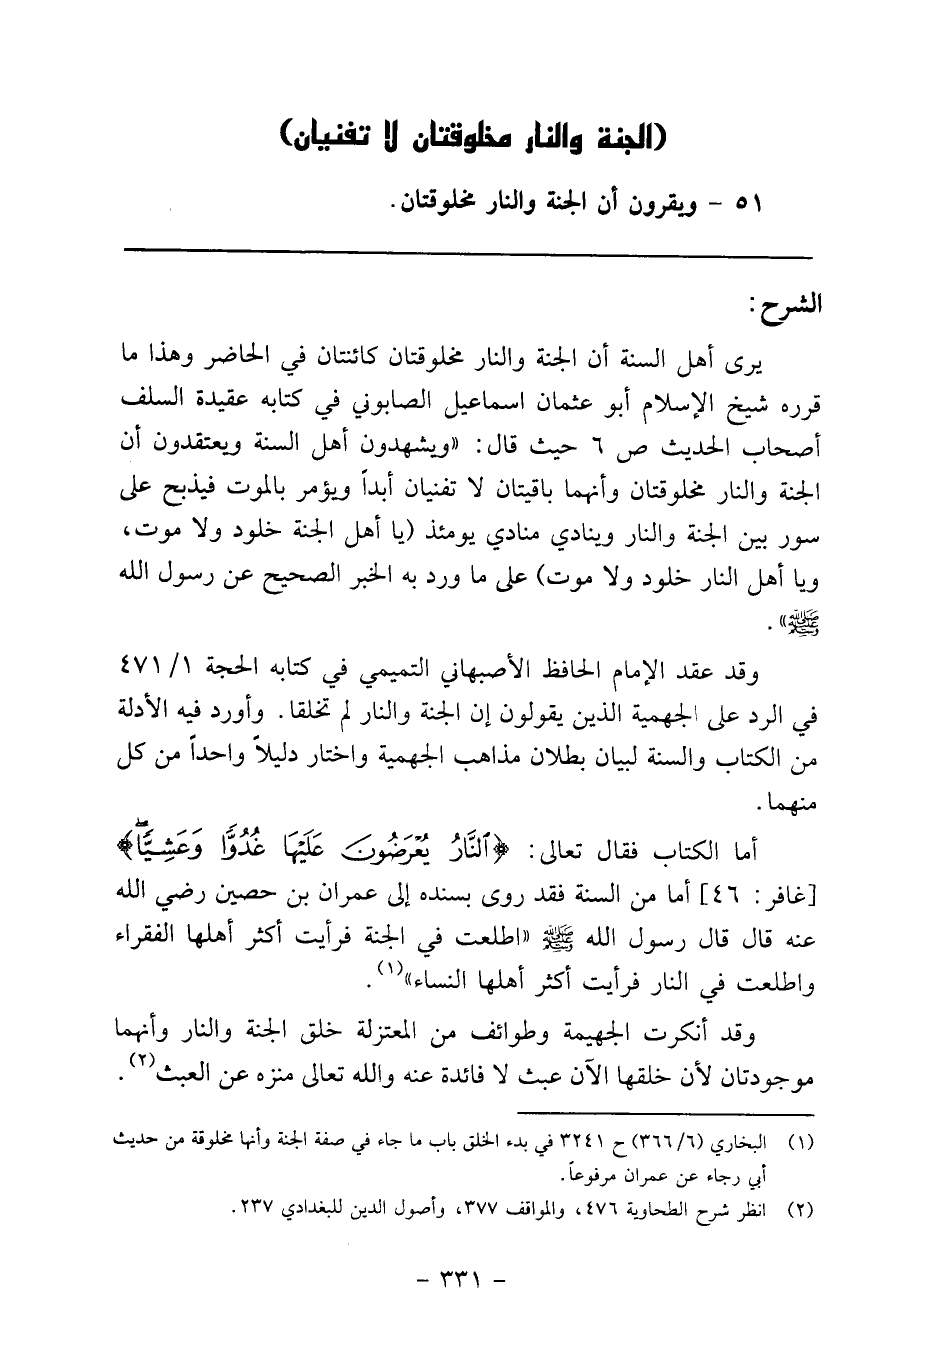 (الجنة والنار مخلوقتان لا تفنيان)
٥١ - ويقرون أن الجنة والنار مخلوقتان.
الشرح:
يرى أهل السنة أن الجنة والنار مخلوقتان كائنتان في الحاضر وهذا ما
قرره شيخ الإسلام أبو عثمان اسماعيل الصابوني في كتابه عقيدة السلف
أصحاب الحديث ص ٦ حيث قال: «ويشهدون أهل السنة ويعتقدون أن
الجنة والنار مخلوقتان وأنهما باقيتان لا تفنيان أبداً ويؤمر بالموت فيذبح على
سور بين الجنة والنار وينادي منادي يومئذ (يا أهل الجنة خلود ولا موت،
ويا أهل النار خلود ولا موت) على ما ورد به الخبر الصحيح عن رسول الله
ﷺ».
وقد عقد الإمام الحافظ الأصبهاني التميمي في كتابه الحجة ١/ ٤٧١
في الرد على الجهمية الذين يقولون إن الجنة والنار لم تخلقا. وأورد فيه الأدلة
من الكتاب والسنة لبيان بطلان مذاهب الجهمية واختار دليلاً واحداً من كل
منهما.
أما الكتاب فقال تعالى: ﴿ٱلنَّارُ يُعۡرَضُونَ عَلَيۡهَا غُدُوّٗا وَعَشِيّٗاۖ﴾
[غافر: ٤٦] أما من السنة فقد روى بسنده إلى عمران بن حصين رضي الله
عنه قال قال رسول الله ﷺ «اطلعت في الجنة فرأيت أكثر أهلها الفقراء
واطلعت في النار فرأيت أكثر أهلها النساء»(١).
وقد أنكرت الجهيمة وطوائف من المعتزلة خلق الجنة والنار وأنهما
موجودتان لأن خلقها الآن عبث لا فائدة عنه والله تعالى منزه عن العبث(٢).
(١) البخاري (٣٦٦/٦) ح ٣٢٤١ في بدء الخلق باب ما جاء في صفة الجنة وأنها مخلوقة من حديث
أبي رجاء عن عمران مرفوعاً.
(٢) انظر شرح الطحاوية ٤٧٦، والمواقف ٣٧٧، وأصول الدين للبغدادي ٢٣٧.
- ٣٣١ -